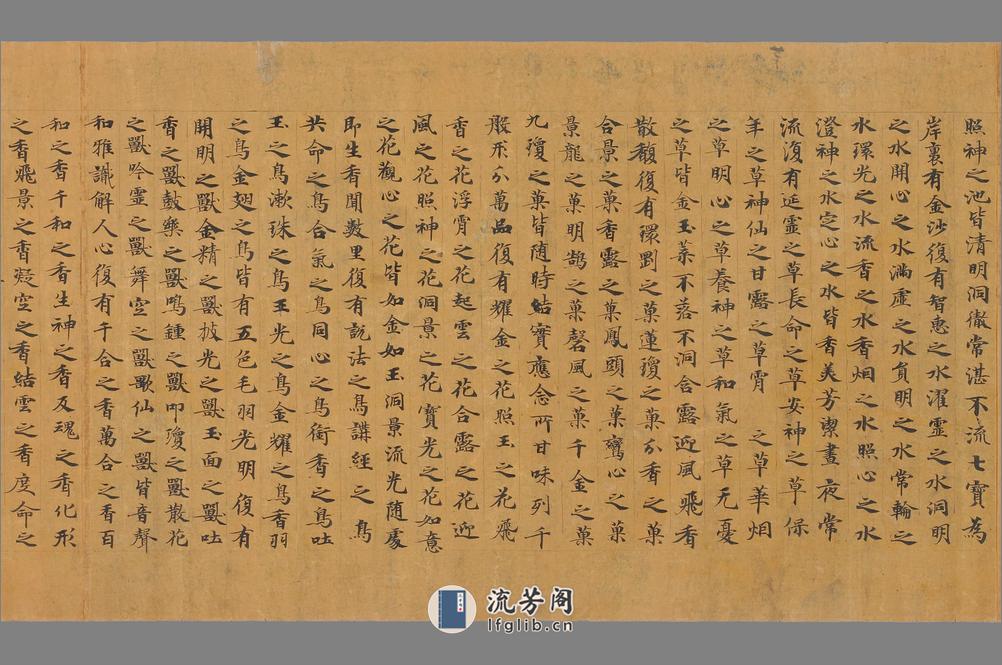 照神之池皆清明洞徹常湛不流七寶為
岸裏有金沙復有智惠之水濯靈之水洞明
之水開心之水滿虛之水負明之水常輪之
水環光之水流香之水香烟之水照心之水
澄神之水定心之水皆香美芳潔晝夜常
流復有延靈之草長命之草安神之草保
年之草神仙之甘露之草霄之草華烟
之草明心之草養神之草和氣之草无憂
之草皆金玉菜不落不洞含露迎風飛香
散馥復有環剛之菓蓮瓊之菓分香之菓
合景之菓香露之菓鳳頭之菓鸞心之菓
景龍之菓明鵲之菓磬風之菓千金之菓
九瓊之菓皆随時結實應念所甘味列千
般形分萬品復有耀金之花照玉之花飛
香之花浮霄之花起雲之花合露之花迎
風之花照神之花洞景之花寶光之花如意
之花觀心之花皆如金如玉洞景流光随處
即生香聞數里復有說法之鳥講經之鳥
共命之鳥合氣之鳥同心之鳥銜香之鳥吐
玉之鳥漱珠之鳥玉光之鳥金耀之鳥香羽
之鳥金翅之鳥皆有五色毛羽光明復有
開明之獸金精之獸披光之獸玉面之獸吐
香之獸鼓樂之獸鳴鍾之獸叩瓊之獸散花
之獸吟靈之獸舞空之獸歌仙之獸皆音聲
和雅識解人心復有千合之香萬合之香百
和之香千和之香生神之香反魂之香化形
之香飛景之香凝空之香結雲之香度命之
流芳阁
lfglib.cn